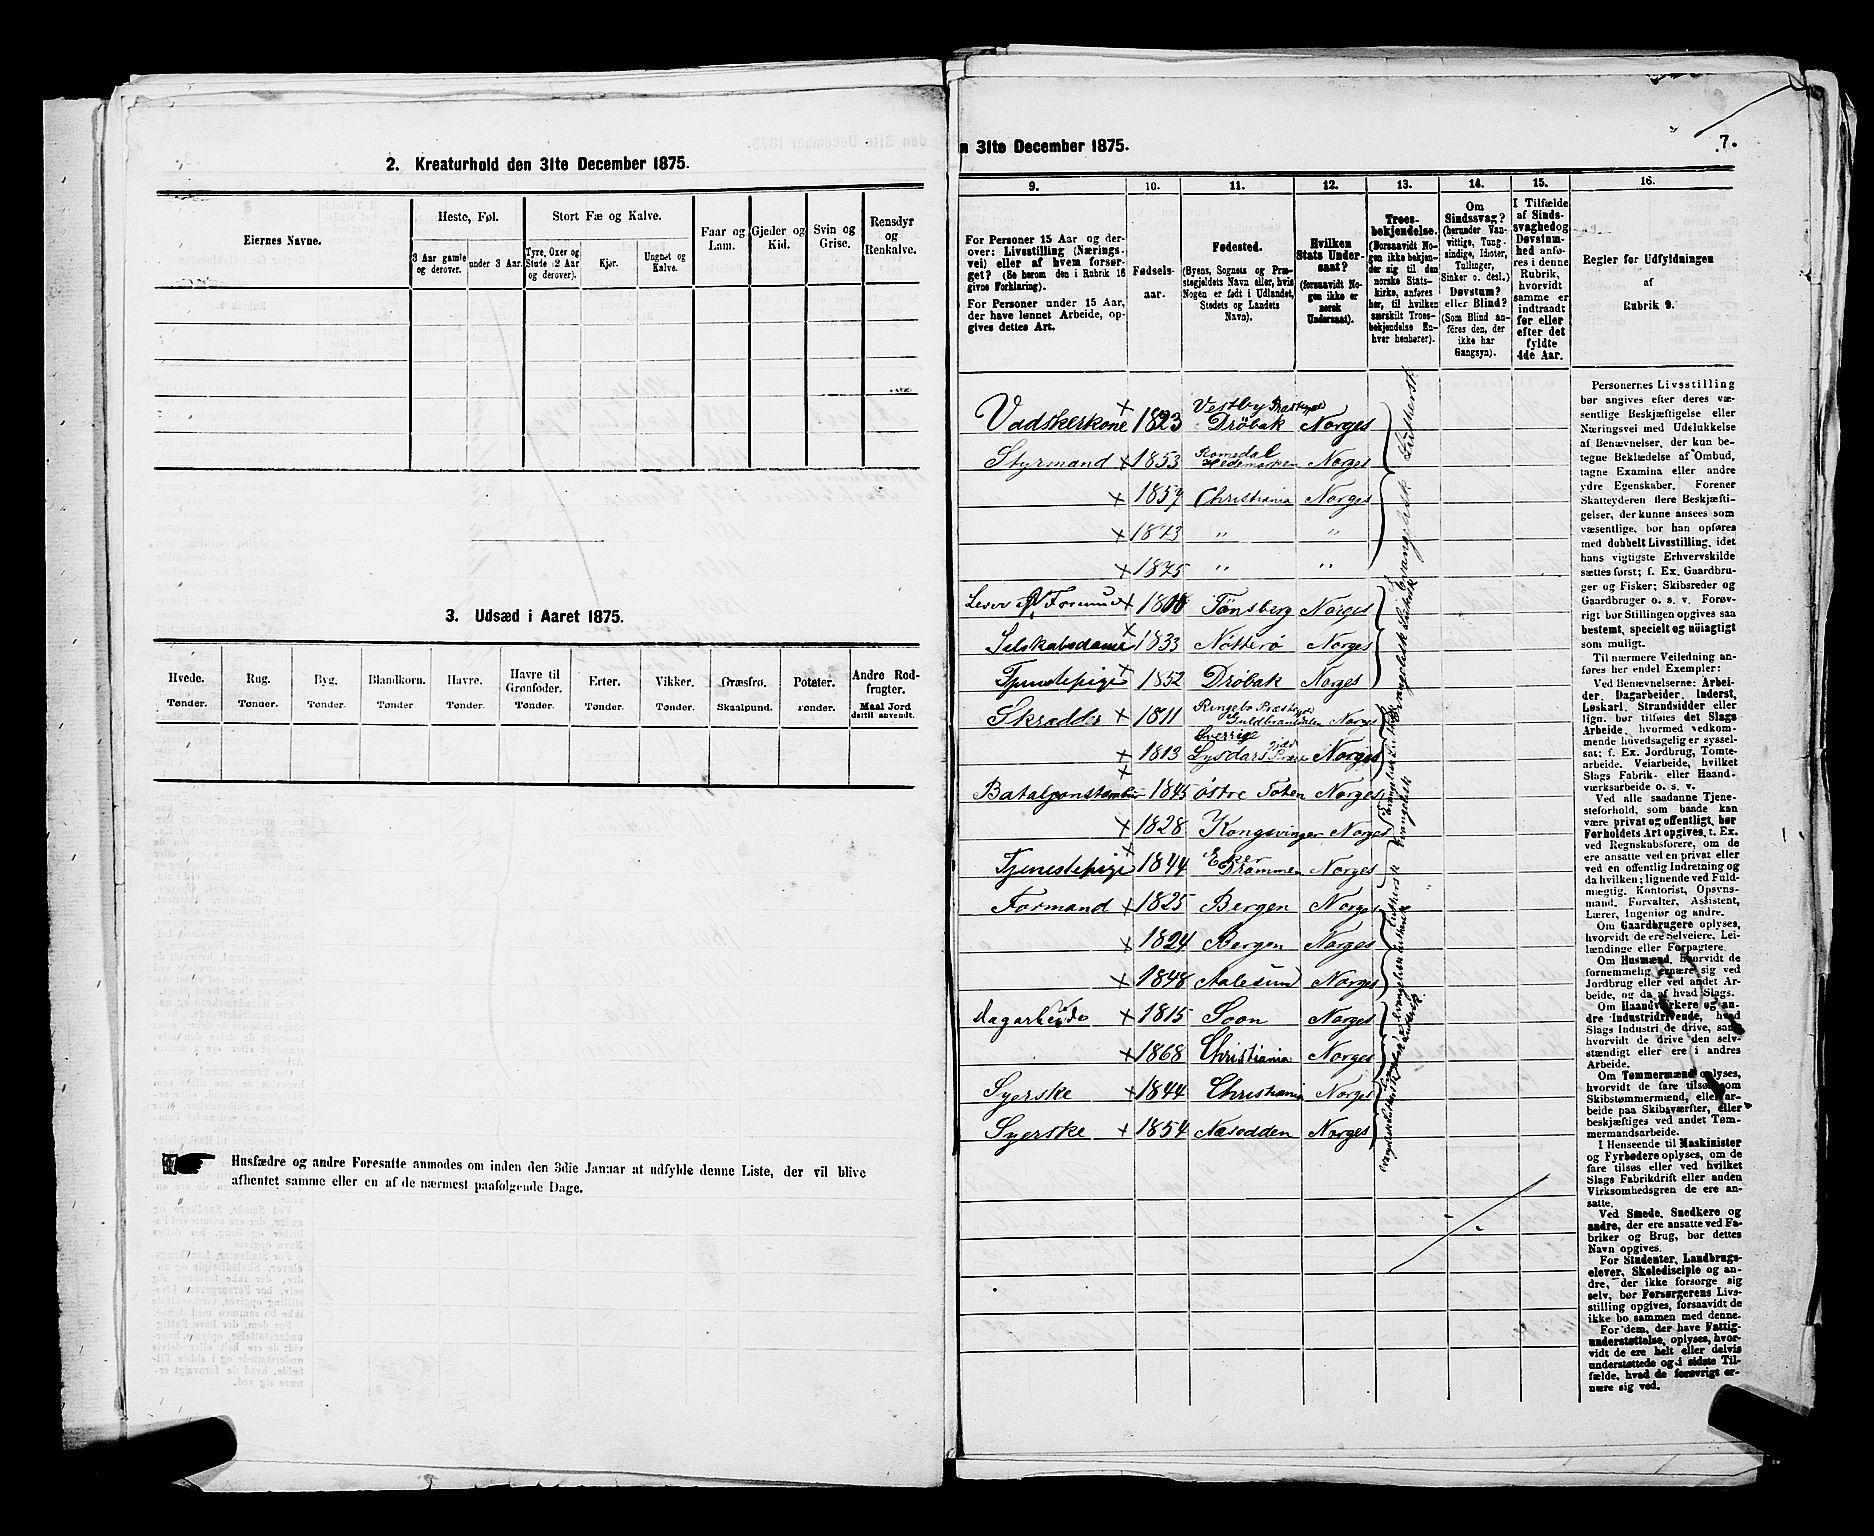 2. Kreaturhold den 31te December 1875.
Eiernes Navne.
Heste, Føl.
3 Aar gamle og derover.
under 3 Aar.
Stort Fæ og Kalve.
Tyre, Oxer og Stude (2 Aar og derover).
Kjør.
Ungnøt og Kalve.
Faar og Lam.
Gjeder og Kid.
Svin og Grise.
Rensdyr og Renkalve.
3. Udsæd i Aaret 1875.
Hvede. Rug. Byg. Blandkorn. Havre. Havre til Grønfoder. Erter. Vikker. Græsfrø. Poteter. Andre Rodfrugter.
Tønder. Tønder. Tønder. Tønder. Tønder. Tønder. Tønder. Tønder. Skaalpund. Tønder. Maal Jord dertil anvendt.
Husfædre og andre Foresatte anmodes om inden den 3die Januar at udfylde denne Liste, der vil blive
afhentet samme eller en af de nærmest paafølgende Dage.
n 31te December 1875.
7.
9. 10. 11. 12. 13. 14. 15. 16.
For Personer 15 Aar og der-
over: Livsstilling (Nærings-
vei) eller af hvem forsør-
get? (Se herom den i Rubrik 16
givne Forklaring).
For Personer under 15 Aar,
der have lønnet Arbeide, op-
gives dettes Art.
Fødsels-
aar.
Fødested.
(Byens, Sognets og Præ-
stegjeldets Navn eller, hvis
Nogen er født i Udlandet,
Stedets og Landets
Navn).
Hvilken
Stats Under-
saat?
(forsaavidt No-
gen ikke er
norsk
Undersaat).
Troes-
bekjendelse.
(Forsaavidt No-
gen ikke bekjen-
der sig til den
norske Stats-
kirke, anføres
her, til hvilken
særskilt Troes-
bekjendelse En-
hver henhører).
Om
Sindssvag?
(herunder Van-
vittige, Tung-
sindige, Idioter,
Tullinger,
Sinker o. desl.)
Døvstum?
eller Blind?
(Som Blind an-
føres den, der
ikke har
Gangsyn).
I Tilfælde
af Sinds-
svaghed og
Døvstum-
hed anfø-
res i denne
Rubrik,
hvorvidt
samme er
indtraadt
før eller
efter det
fyldte
4de Aar.
Regler for Udfyldningen
af
Rubrik 9.
Vadskerkone 1823 Vestby Præstegjed Drøbak Norges
Styrmand 1853 Romsdal Hedemarken Norges
1857 Christiania Norges
1873 " "
1875 " "
1810 Tønsberg Norges
Selskabsdame 1833 Nøtterø Norges
Tjenestepige 1852 Drøbak Norges
Skrædder 1811 Ringebo Præstegjed Guldbrandsdalen Norges
1813 Sverrige Norges
1845 Østre Toten Norges
1828 Kongsvinger Norges
Tjenestepige 1844 Eker Drammen Norges
Formand 1825 Bergen Norges
1824 Bergen Norges
1848 Aalesund Norges
Dagarbeider 1815 Soon Norges
1868 Christiania Norges
Syerske 1844 Christiania Norges
Syerske 1854 Næsodden Norges
Evangelisk Luthersk
Personernes Livsstilling
bør angives efter deres væ-
sentlige Beskjæftigelse eller
Næringsvei med Udelukkelse
af Benævnelser, der kun be-
tegne Beklædelse af Ombud,
tagne Examina eller andre
ydre Egenskaber. Forener
Skatteyderen flere Beskjæfti-
gelser, der kunne ansees som
væsentlige, bør han opføres
med dobbelt Livsstilling, idet
hans vigtigste Erhvervskilde
sættes først; f. Ex. Gaardbru-
ger og Fisker; Skibsreder og
Gaardbruger o. s. v. Forøv-
rigt bør Stillingen opgives saa
bestemt, specielt og nöiagtigt
som muligt.
Til nærmere Veiledning an-
føres her endel Exempler:
Ved Benævnelserne: Arbei-
der, Dagarbeider, Inderst,
Løskarl, Strandsidder eller
lign. bør tilføres det Slags
Arbeide, hvormed vedkom-
mende hovedsagelig er syssel-
sat; f. Ex. Jordbrug, Tomte-
arbeide, Veiarbeide, hvilket
Slags Fabrik- eller Haand-
værksarbeide o. s. v.
Ved alle saadanne Tjene-
steforhold, som baade kan
være privat og offentligt, bør
Forholdets Art opgives, t. Ex.
ved Regnskabsførere, om de
ere ansatte ved en privat eller
ved en offentlig Indretning og
da hvilken; lignende ved Fuld-
mægtig, Kontorist, Opsyns-
mand, Forvalter, Assistent,
Lærer, Ingeniør og andre.
Om Gaardbrugere oplyses,
hvorvidt de ere Selveiere, Lei-
lændinge eller Forpagtere.
Om Husmænd, hvorvidt de
fornemmelig ernære sig ved
Jordbrug eller ved andet Ar-
beide, og da af hvad Slags.
Om Haandværkere og an-
dre Industridrivende, hvad
Slags Industri de drive, samt
hvorvidt de drive den selv-
stændigt eller ere i andres
Arbeide.
Om Tømmermænd oplyses,
hvorvidt de fare tilsøs som
Skibstømmermænd, eller ar-
beide paa Skibsværfter, eller
beskjæftiges ved andet Tøm-
mermandsarbeide.
I Henseende til Maskinister
og Fyrbødere oplyses, om de
fare tilsøs eller ved hvilket
Slags Fabrikdrift eller anden
Virksomhedsgren de ere an-
satte.
Ved Smede, Snedkere og
andre, der ere ansatte ved Fa-
briker og Brug, bør dettes
Navn opgives.
For Studenter, Landbrugs-
elever, Skoledisciple og an-
dre, der ikke forsørge sig
selv, bør Forsørgerens Livs-
stilling opgives, forsaavidt de
ikke bo sammen med denne.
For dem, der have Fattig-
understøttelse, oplyses, hvor-
vidt de ere helt eller delvis
understøttede og i sidste Til-
fælde, hvad de forøvrigt er-
nære sig ved.